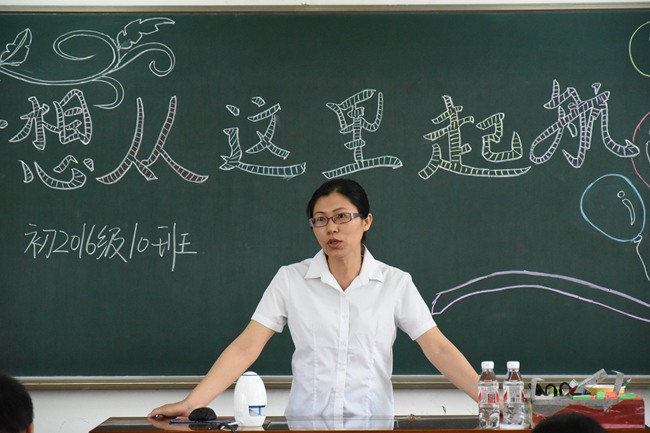 想从这里起航
初2016级10班